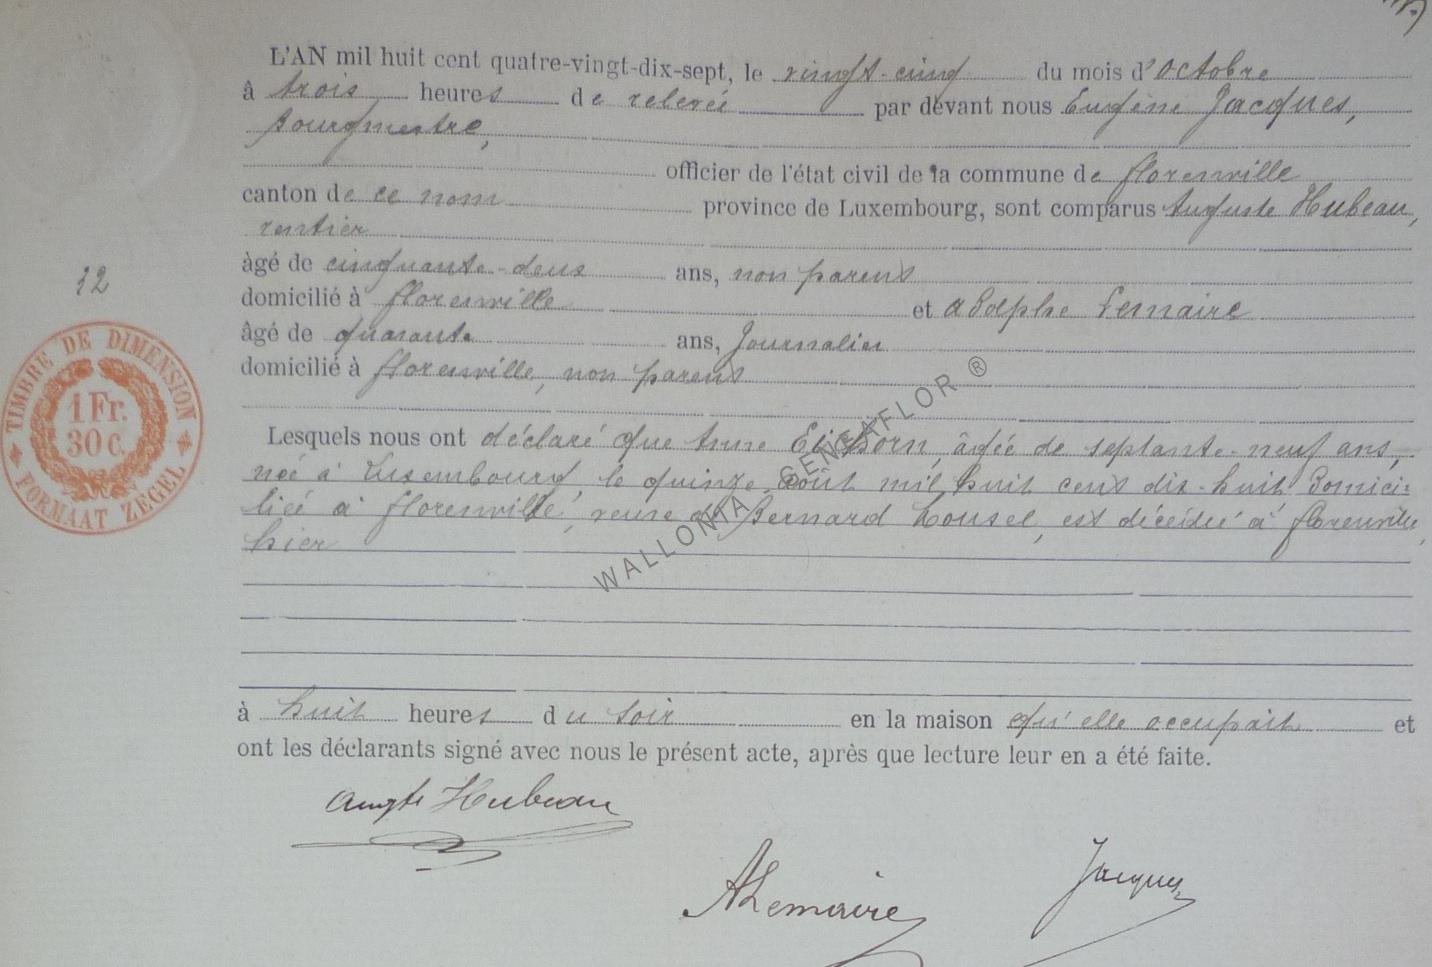 L'AN mil huit cent quatre-vingt-dix-sept, le vingt-cinq du mois d'octobre
à trois heures de relevée par devant nous Eugène Jacques,
Bourgmestre,
officier de l'état civil de la commune de florenville
canton de ce nom province de Luxembourg, sont comparus Auguste Hubeau,
rentier
àgé de cinquante-deux ans, non parent
domicilié à florenville et adolphe Lemaire
âgé de quarante ans, Journalier
domicilié à florenville, non parent
Lesquels nous ont déclaré que Anne âgée de septante-neuf ans,
née à Luxembourg, le quinze août mil huit cent dix-huit domici-
liée à florenville, veuve de Bernard est décédée à florenville,
hier
à huit heures du soir en la maison qu'elle occupait et
ont les déclarants signé avec nous le présent acte, après que lecture leur en a été faite.
Augte Hubeau
ALemaire
Jacques
12
TIMBRE DE DIMENSION
1 Fr.
30 c.
FORMAAT ZEGEL
WALLONIA GENEAFLOR ®